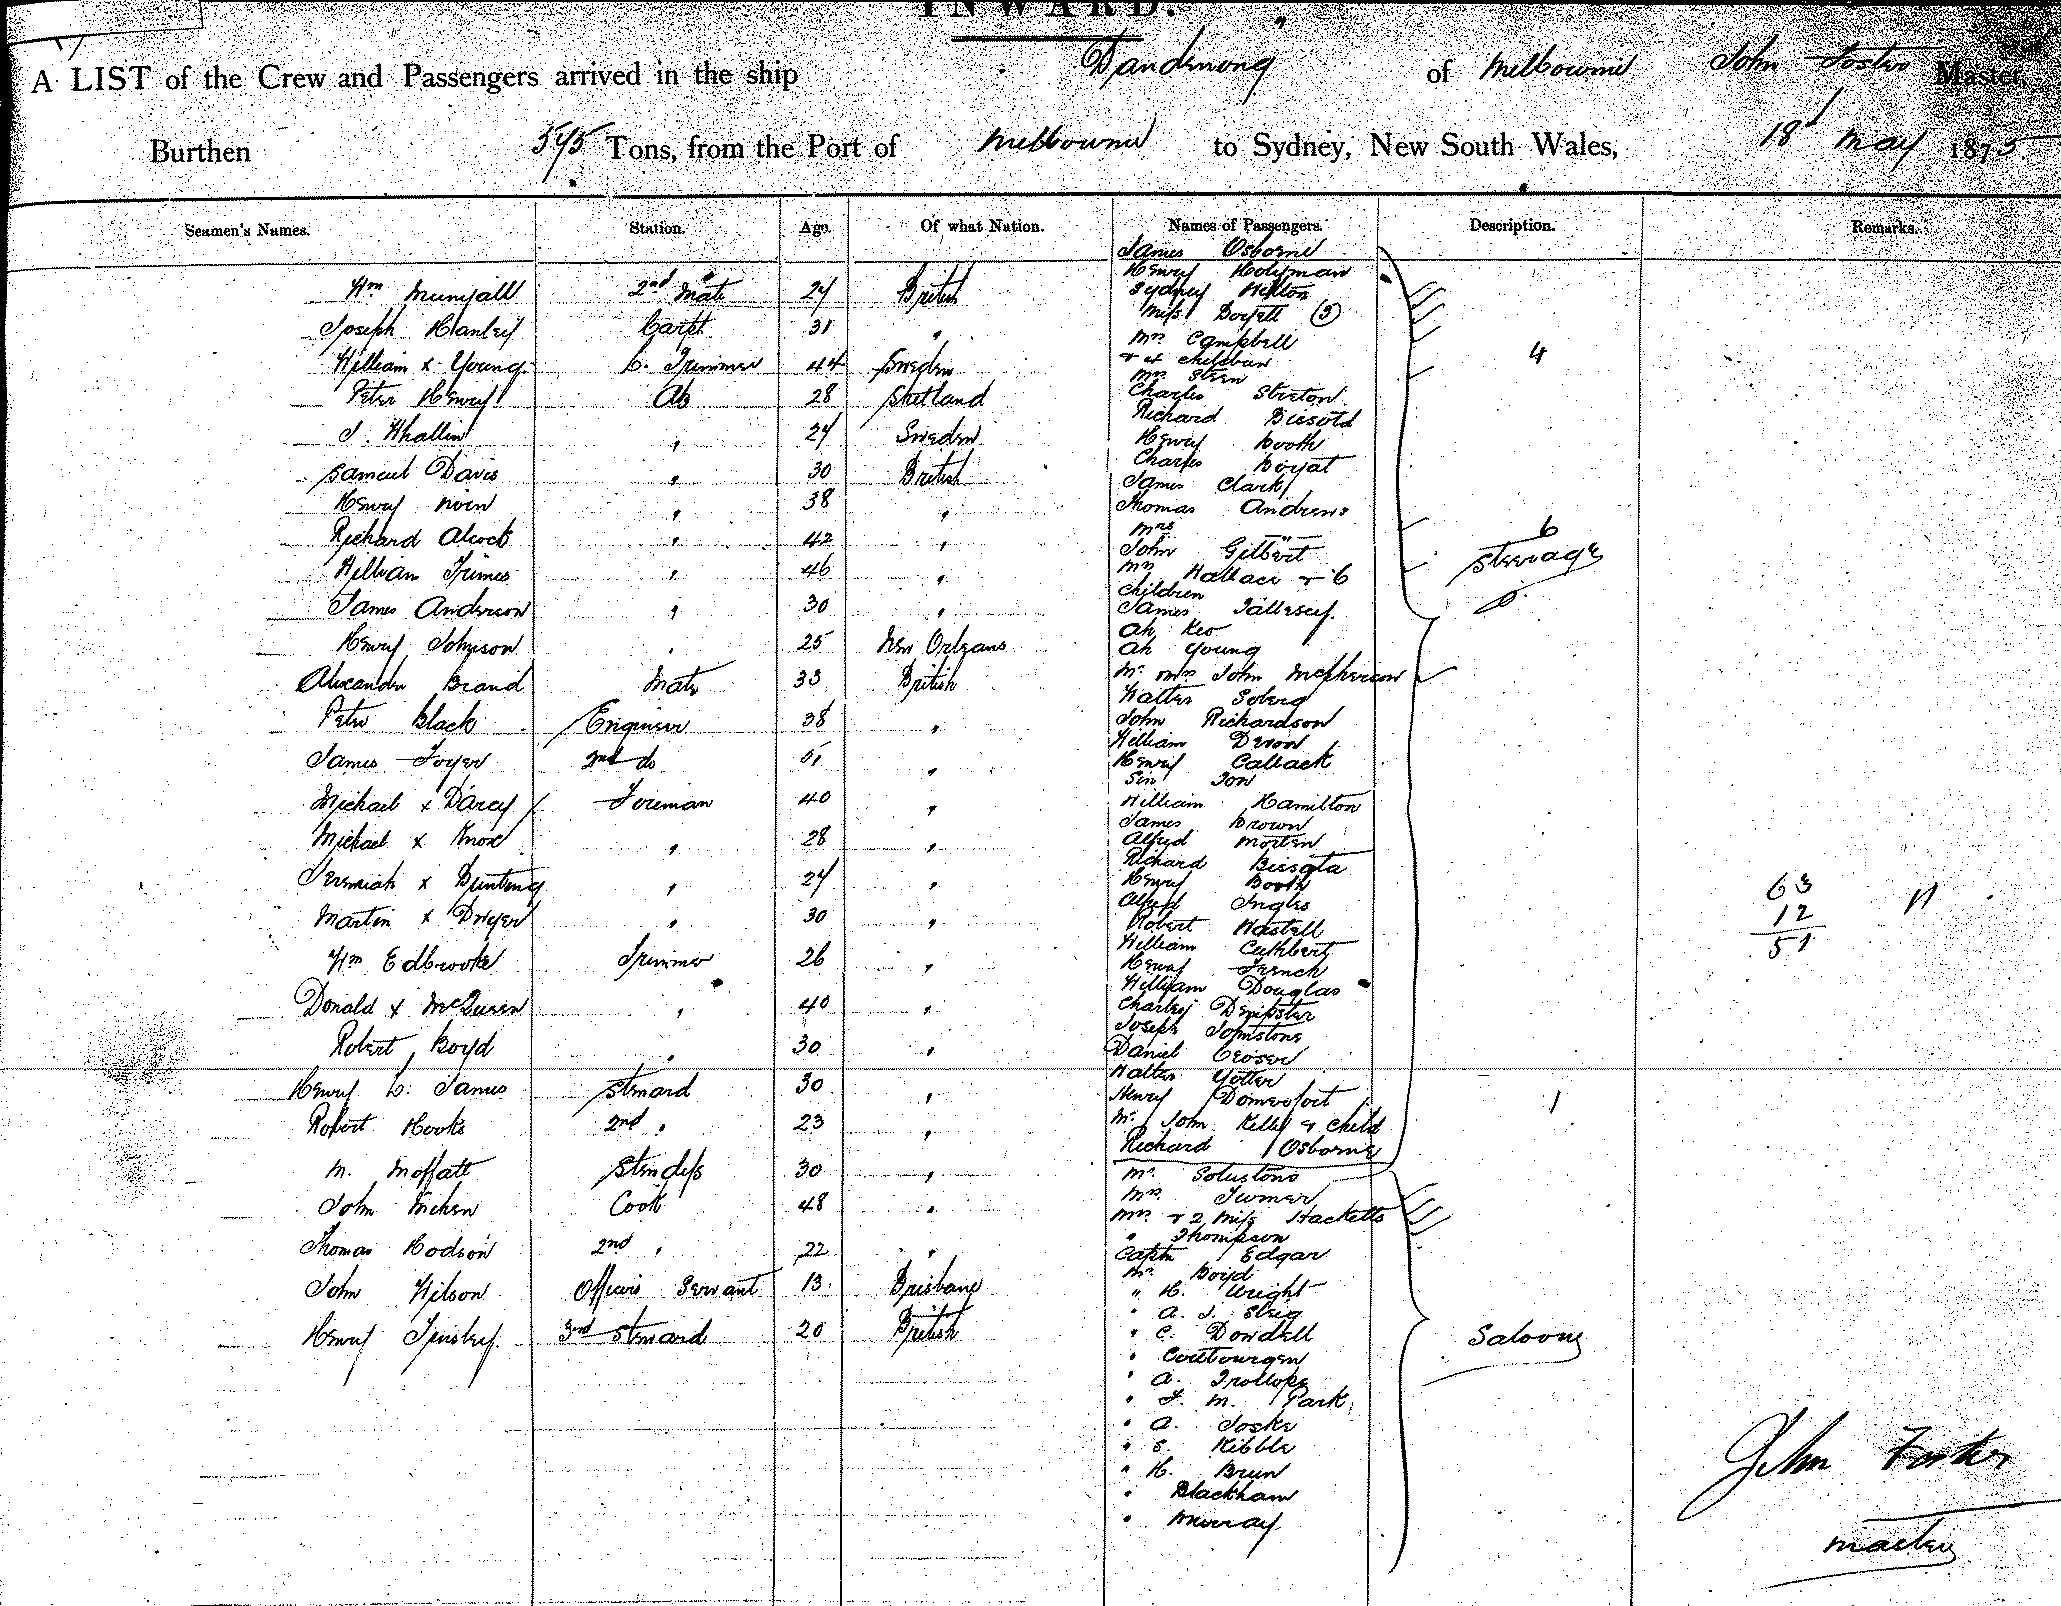 INWARD.
A LIST of the Crew and Passengers arrived in the ship "Dandenong" of Melbourne John Foster Master,
Burthen 545 Tons, from the Port of Melbourne to Sydney, New South Wales, 18 May 1875
Seamen's Names. Station. Age. Of what Nation. Names of Passengers. Description. Remarks.
James Osborne
Henry Holyman
Wm 2nd Mate 24 British Sydney Hilton
Miss (3)
Joseph Hanley Carpt 31 "
Mrs Campbell
William x Young L. Trimmer 44 Sweden & 4 children 4
Mrs Steen
Peter Henry Ab 28 Shetland Charles
Richard
J. Whallin " 24 Sweden Henry Booth
Samuel Davis " 30 British Charles
James Clark
Henry " 38 " Thomas Andrews
Mrs "
Richard Alcock " 42 " John Gilbert 6 Steerage
William Grimes " 46 " Mrs Wallace & 6
children
James Anderson " 30 " James
Ah Keo
Henry Johnson " 25 New Orleans Ah Young
Alexander Brand Mate 33 British Mr Mrs John McPherson
Walter Soberg
Peter Black Engineer 38 " John Richardson
William Devon
James Foyer 2nd do " Henry
Sin Ton
Michael x D'Arcy Fireman 40 " William Hamilton
James Brown
Michael x Knox " 28 " Alfred Morten
Richard
Jeremiah x Bunting " 24 " Henry Booth 63
Alfred Ingles
Martin x Dwyer " 30 " Robert 12
William Cuthbert 51
Wm Edbrooke Trimmer 26 " Henry French
William Douglas
Donald x McQueen " 40 " Charley Dempster
Joseph Johnstone
Robert Boyd " 30 " Daniel
Walter
Henry L. James Steward 30 " Henry 1
Robert Hooks 2nd " 23 " Mr John Kelly & child
Richard Osborne
M. Moffatt Stewdess 30 " Mr
Mrs Turner
John Cook 48 " Mrs & 2 Miss Hacketts
" Thompson
Thomas Hodson 2nd " 22 " Captn Edgar
Mr. Boyd
John Wilson Officers Servant 13 Brisbane " H. Wright
" A. J.
Henry Tinsley 3rd Steward 20 British " C. Dowdell Saloon
"
" A. Trollope
" F. M. Park
" A. Joske
" S. Kibble John Foster
" H. Brun
" Blackham
" Murray master